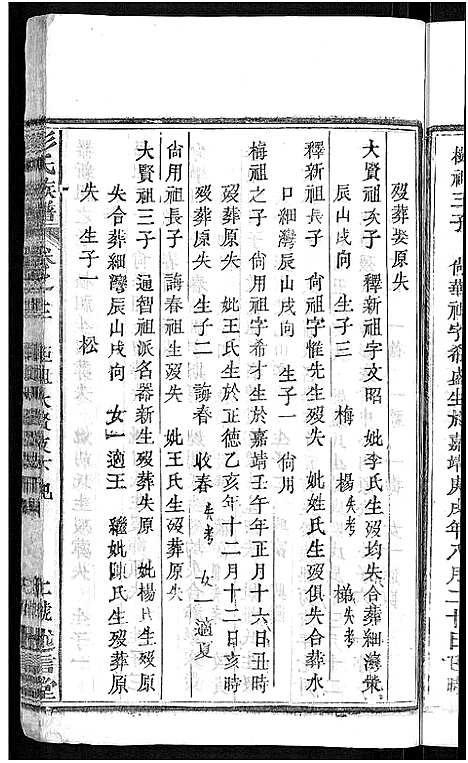 梅祖三子 尙華祖字希盛生於嘉靖庚戌年八月二十日巳時
歿葬娶原失
大賢祖次子 釋新祖字文昭 妣李氏生歿均失合葬細灣
辰山戌向 生子三 梅 楊失考 梯失考
釋新祖長子 尙祖字惟先生歿失 妣姓氏生歿俱失合葬水
口細灣辰山戌向 生子一 尙用
梅祖之子 尙用祖字希才生於嘉靖壬午年正月十六日丑時
歿葬原失 妣王氏生於正德乙亥年十二月十二日亥時
歿葬原失 生子二 誨春 收春失考 女一適夏
尙用祖長子 誨春祖生歿失 妣王氏生歿葬原失
大賢祖三子 通智祖派名器新生歿葬失原 妣楊氏生歿原
失合葬細灣辰山戌向 女一適王 繼妣陳氏生歿葬原
失 生子一 松
彭氏族譜 卷之三 述信堂